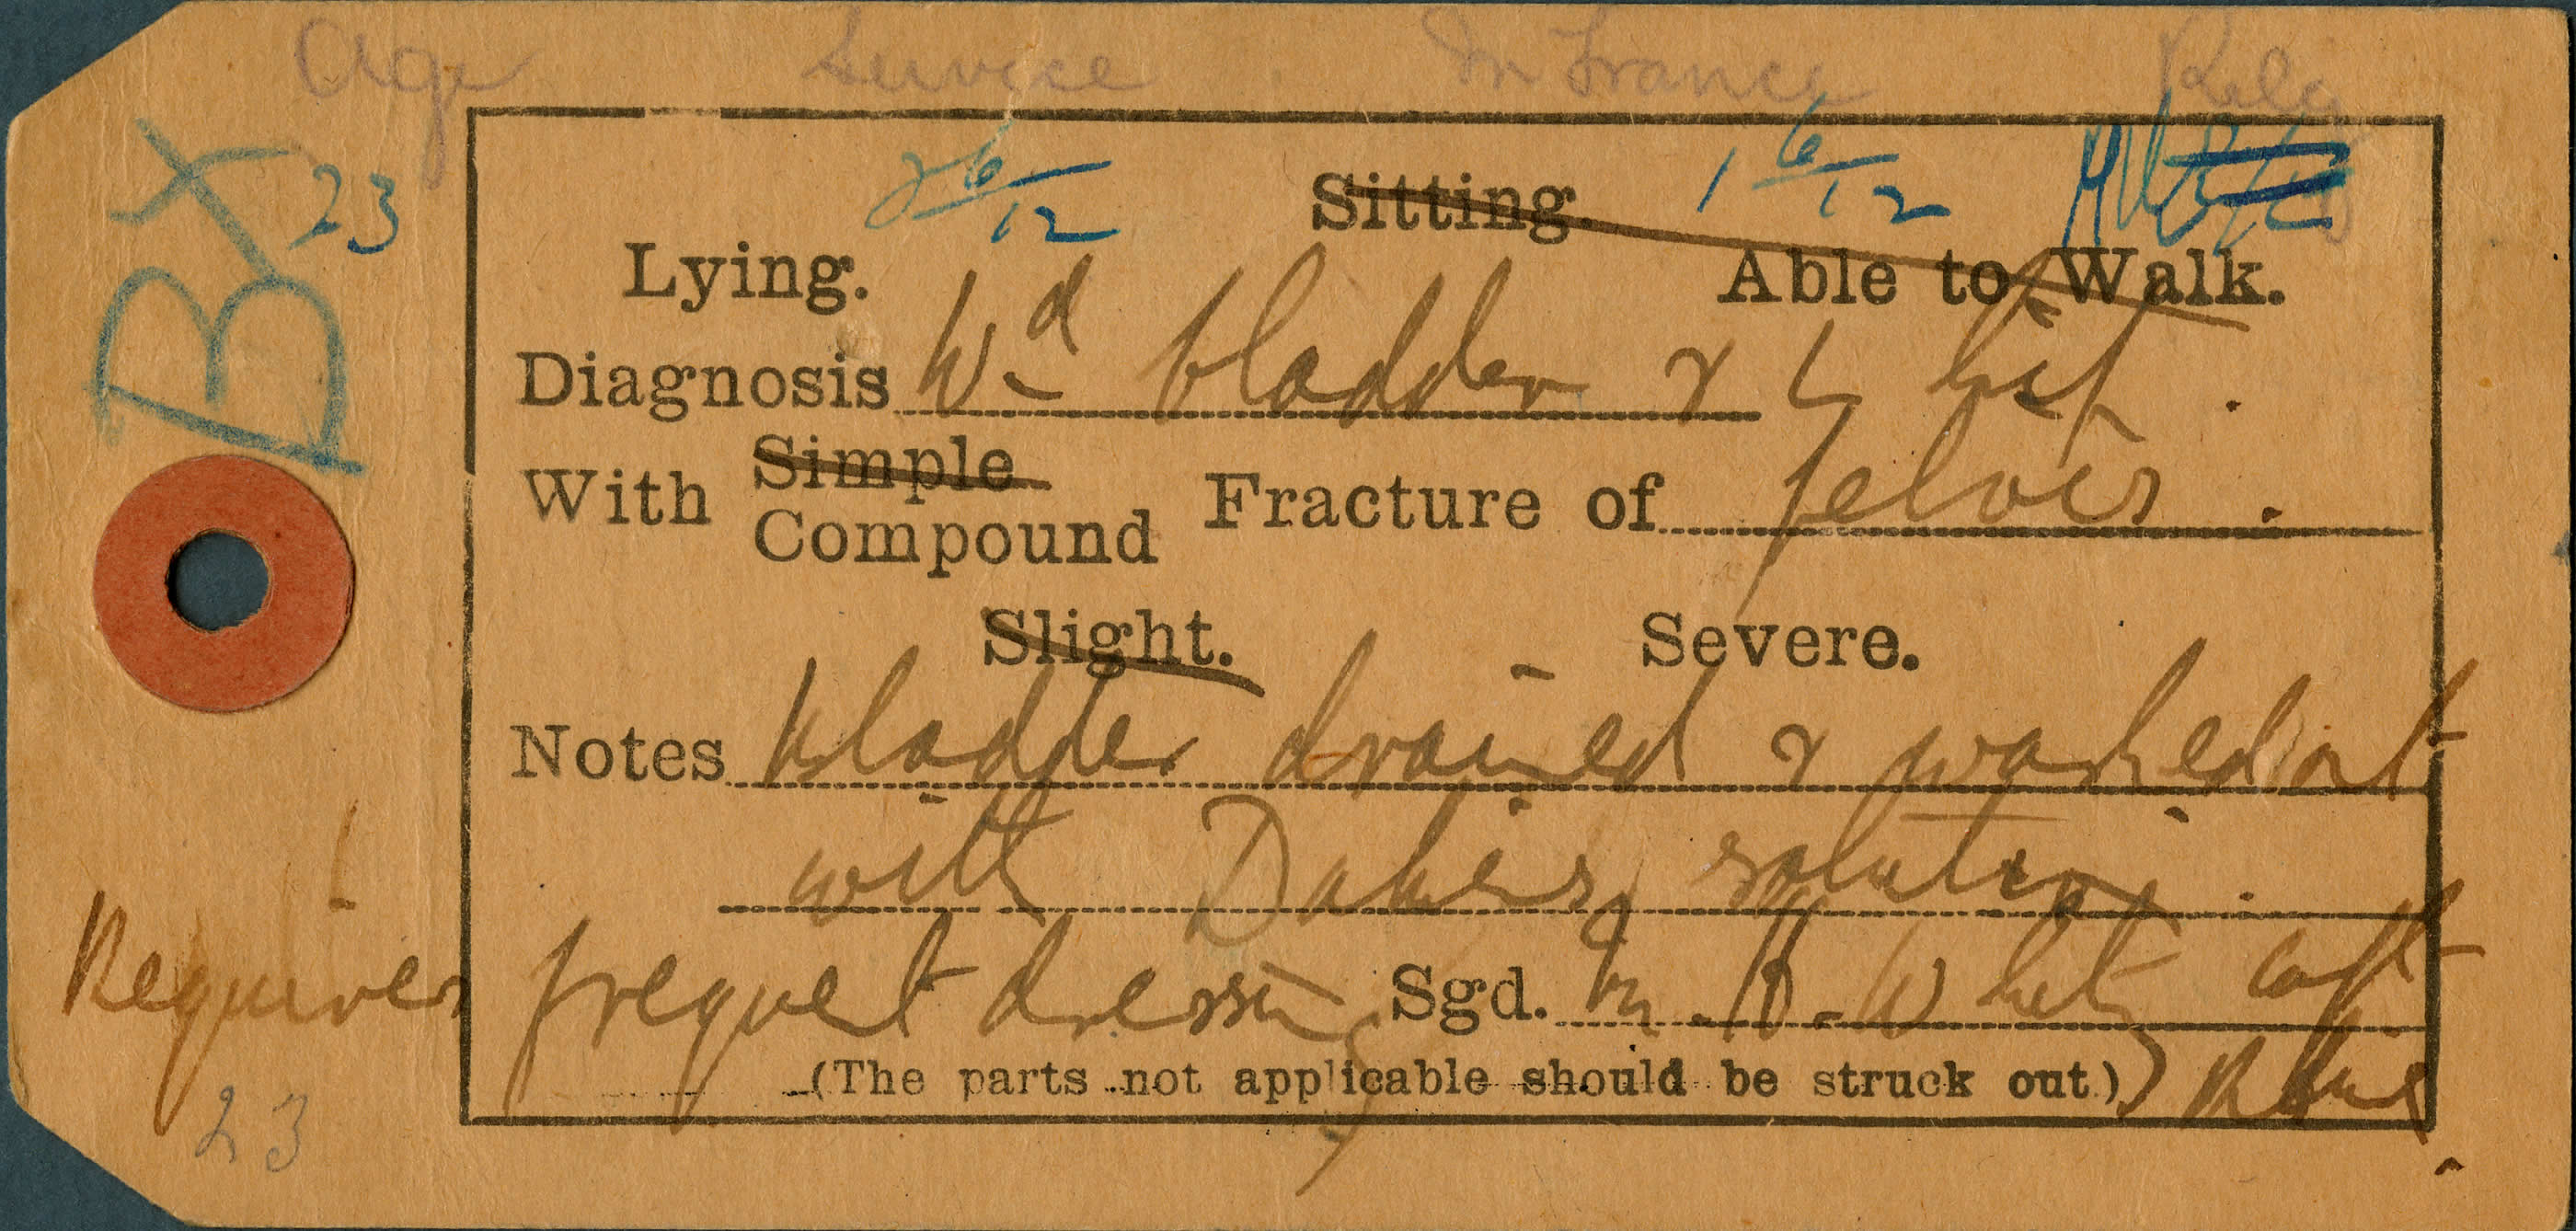 Age Service In France Relg
BX 23 2 6/12 1 6/12
Sitting.
Lying. Able to Walk.
Diagnosis Wd bladder & L hip.
With Simple Compound Fracture of pelvis.
Slight. Severe.
Notes bladder drained & washed out
with Dakin's solution.
Requires frequent dressing Sgd. M. H. Whity Capt
(The parts not applicable should be struck out.) RAMC.
23